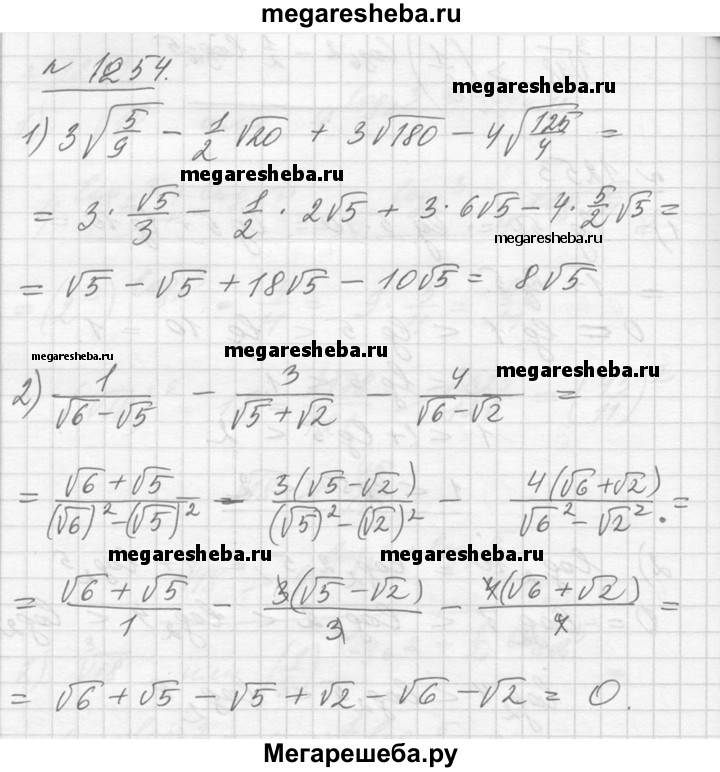 megaresheba.ru
№ 1254.
megaresheba.ru
1) 3√(5/9) − 1/2 √20 + 3√180 − 4√(125/4) =
megaresheba.ru
= 3 · √5/3 − 1/2 · 2√5 + 3 · 6√5 − 4 · 5/2 √5 =
megaresheba.ru
= √5 − √5 + 18√5 − 10√5 = 8√5
megaresheba.ru megaresheba.ru megaresheba.ru
2) 1/(√6 − √5) − 3/(√5 + √2) − 4/(√6 − √2) =
= (√6 + √5)/((√6)² − (√5)²) − 3(√5 − √2)/((√5)² − (√2)²) − 4(√6 + √2)/(√6² − √2²) =
megaresheba.ru megaresheba.ru
= (√6 + √5)/1 − 3(√5 − √2)/3 − 4(√6 + √2)/4 =
= √6 + √5 − √5 + √2 − √6 − √2 = 0.
Мегарешеба.ру